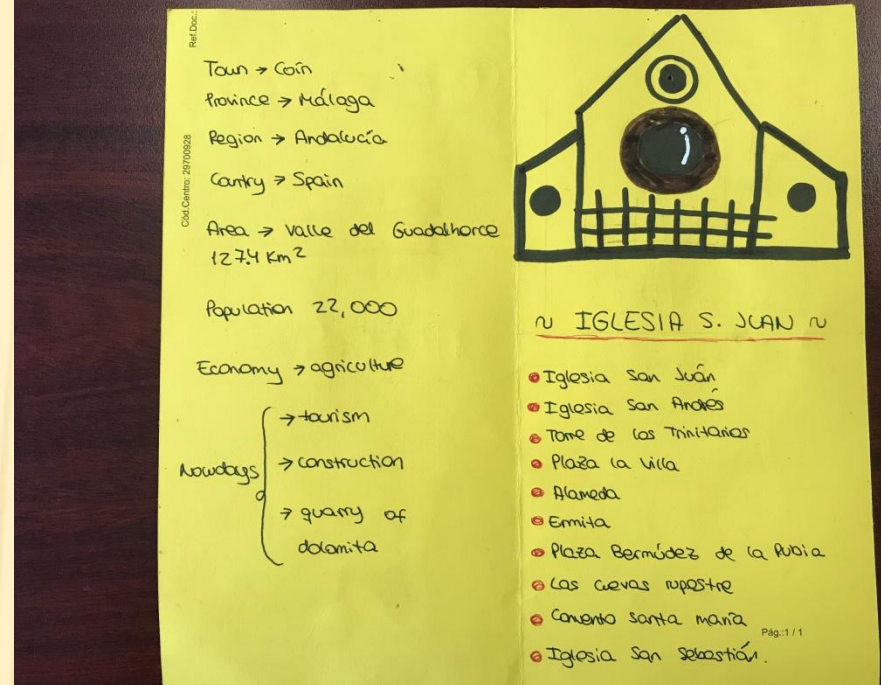 Ref.Doc.:
Cód.Centro: 29700928
Town → Coín
Province → Málaga
Region → Andalucía
Country → Spain
Area → Valle del Guadalhorce
127.4 Km²
Population 22,000
Economy → agriculture
Nowdays
→ tourism
→ construction
→ quarry of
dolomita
~ IGLESIA S. JUAN ~
Iglesia San Juán
Iglesia San Andrés
Torre de los Trinitarios
Plaza la Villa
Alameda
Ermita
Plaza Bermúdez de la Rubia
Las cuevas rupestre
Convento santa maría
Pág.:1 / 1
Iglesia San Sebastián.